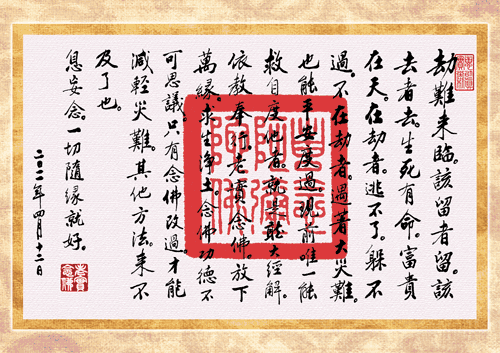 劫難来臨。該留者留。該
去者去。生死有命。富貴
在天。在劫者。逃不了。躲不
過。不在劫者。遇著大災難。
也能平安度過。現前唯一能
救自度他者。就是大經解。
依教奉行。老實念佛。放下
萬緣。求生淨土。念佛功德不
可思議。只有念佛改過。才能
減輕災難。其他方法。来不
及了也。
息妄念。一切隨緣就好。
二〇二一年四月十二日
老實
念佛